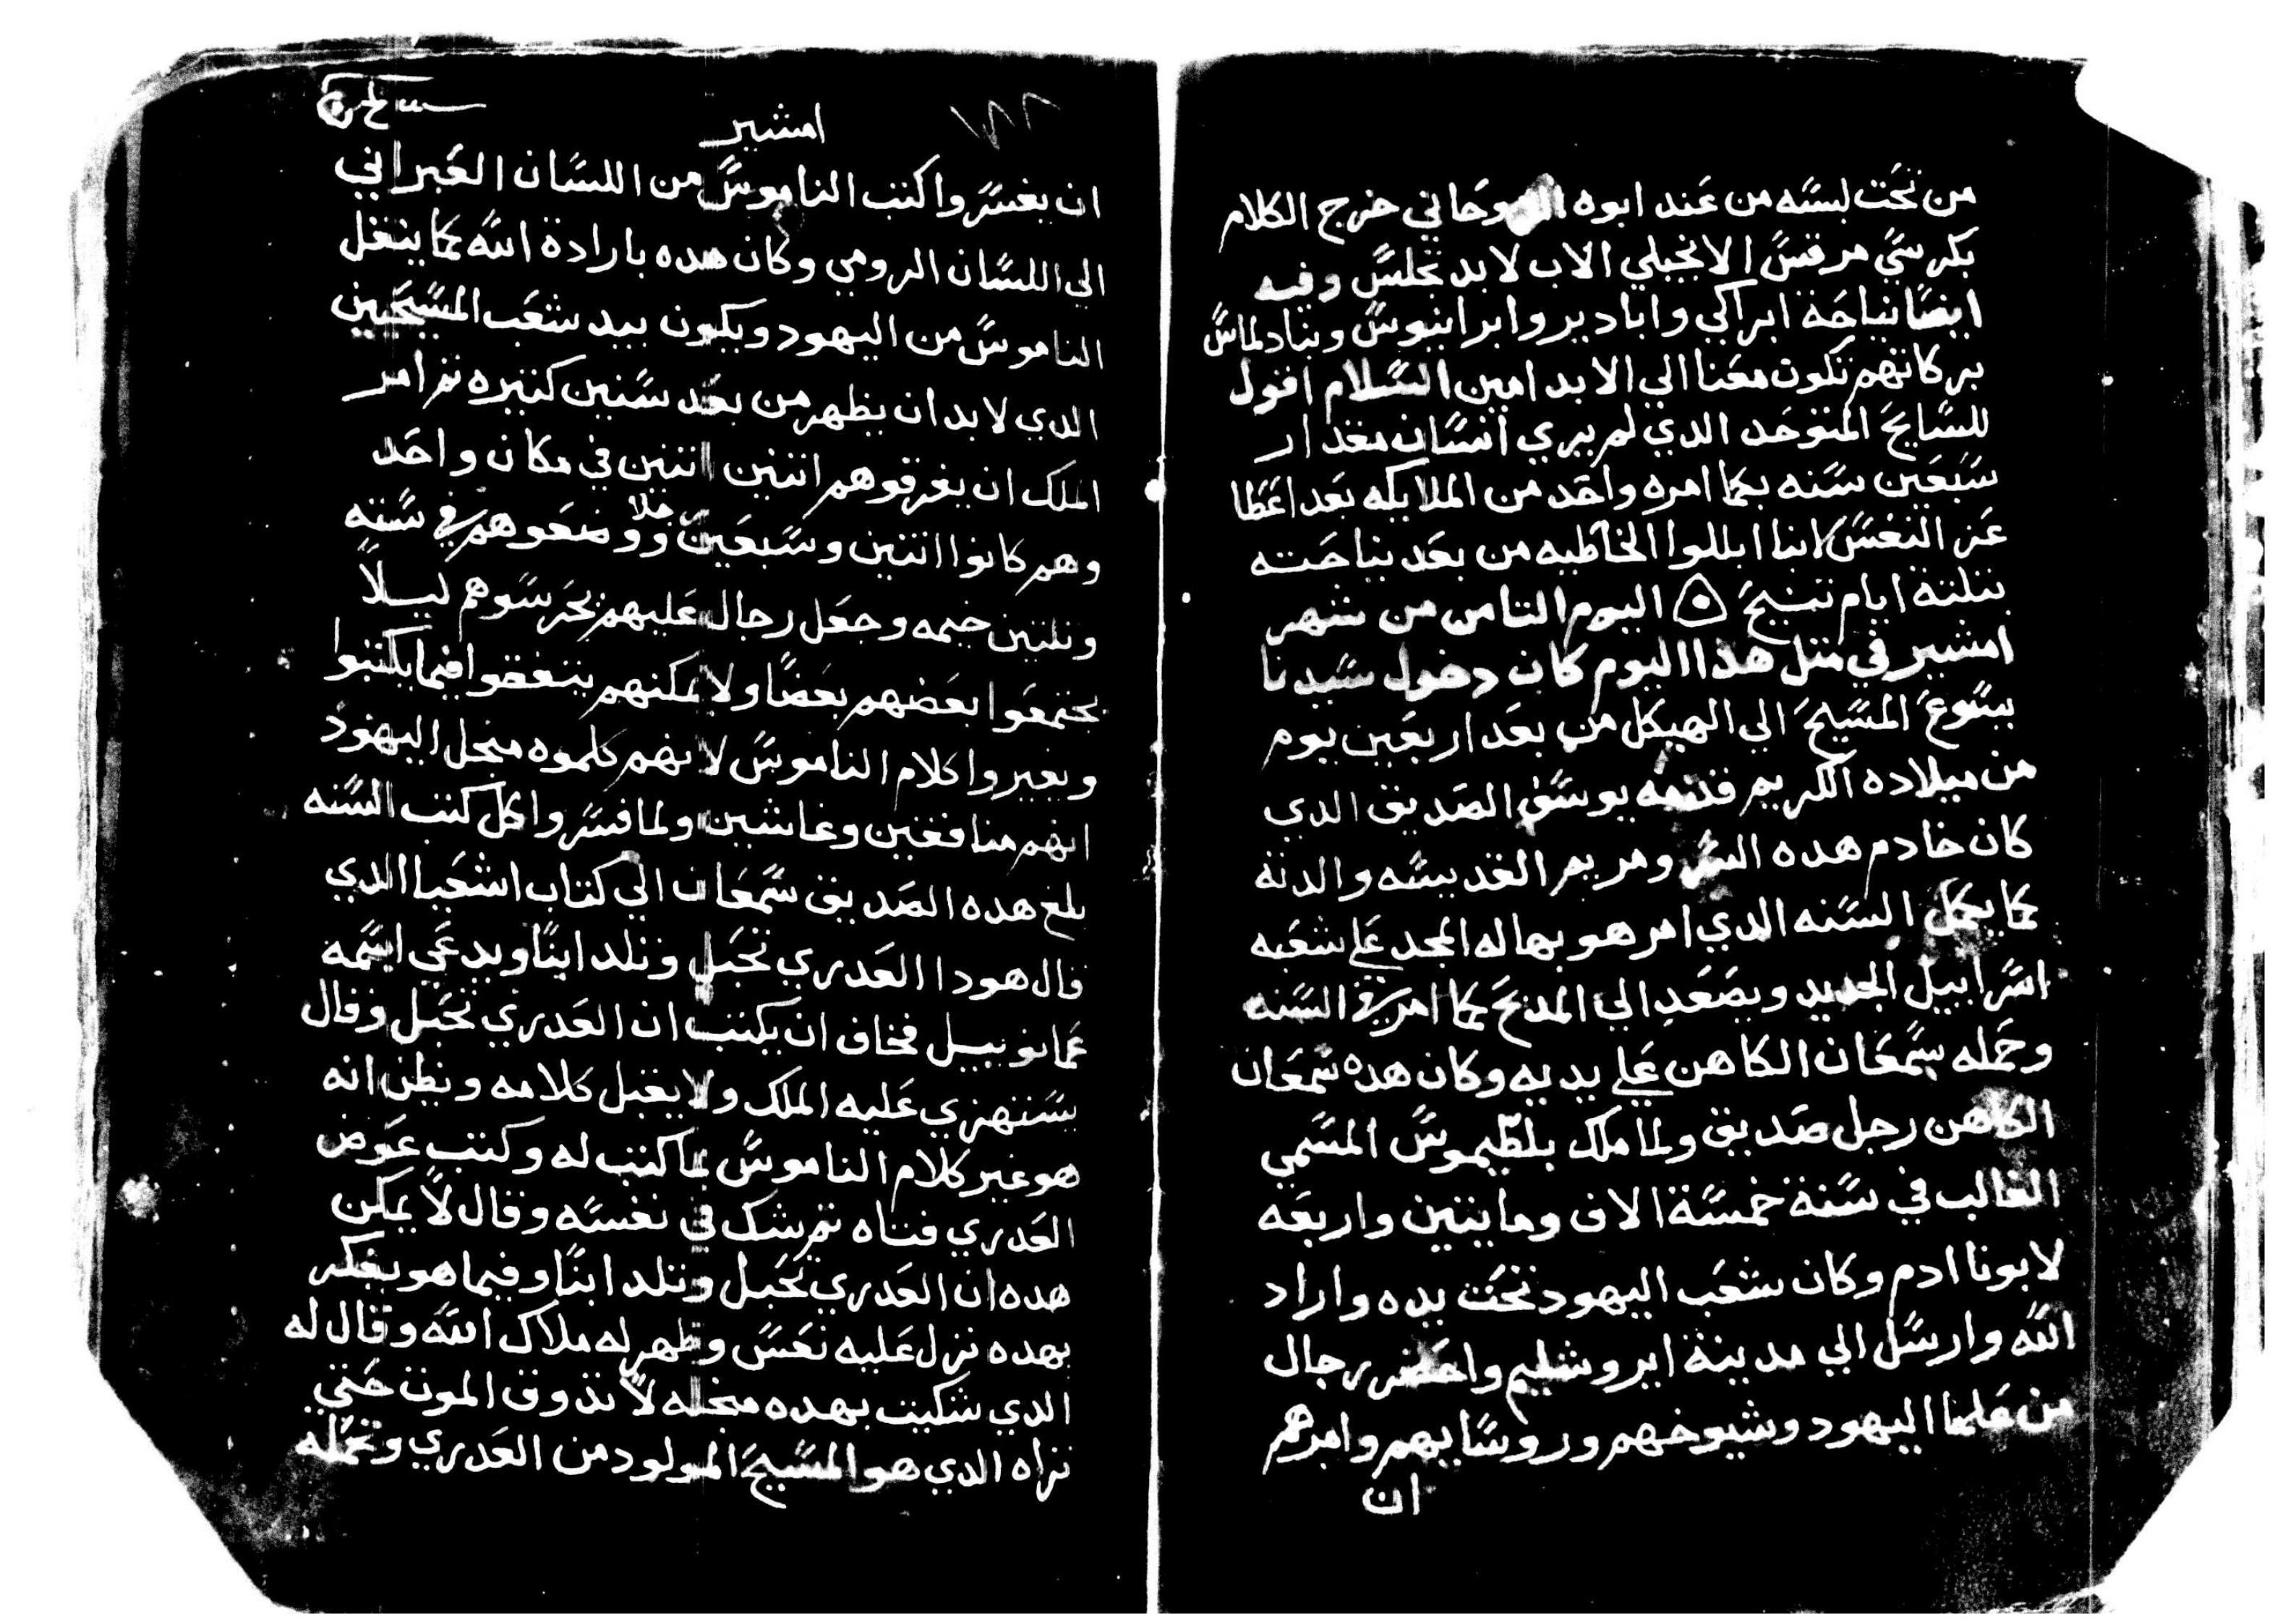 من تحت لبسه من عند ابوه الروحاني خرج الكلام
بكرسي مرقس الانجيلي الاب لابد تجلس وفيه
ايضا نياحة ابراكي وابادير وابرانيوس وبنادلماس
بركاتهم تكون معنا الي الابد امين السلام اقول
للسايح المتوحد الدي لم يري انسان مقدار
سبعين سنه بكما امره واحد من الملايكه بعد اعطا
عز النفس ابللوا الخاطيه من بعد نياحته
بتلتة ايام تنيح اليوم التامن من شهر
امشير في متل هذا اليوم كان دخول سيدنا
يسوع المسيح الي الهيكل من بعد اربعين يوم
من ميلاده الكريم قدمه يوسف الصديق الدي
كان خادم هده السر ومريم القديسه والدته
كما يكمل السنه الدي امر هو بها له المجد علي شعبه
اسراييل الجديد ويصعد الي المدبح كما امر في السنه
وحمله سمعان الكاهن علي يديه وكان هده سمعان
الكاهن رجل صديق ولما ملك بلطيموس المسمي
الغالب في سنة خمسة الاف ومايتين واربعه
لابونا ادم وكان شعب اليهود تحت يده واراد
الله وارسل الي مدينة ايروشليم واحضر رجال
من علما اليهود وشيوخهم وروسايهم وامرهم
ان
امشير
١٨٢
ان يفسروا كتب الناموس من اللسان العبراني
الي اللسان الرومي وكان هده بارادة الله كما ينتقل
الناموس من اليهود ويكون بيد شعب المسيحيين
الدي لابد ان يظهر من بعد سنين كتيره تم امر
الملك ان يفرقوهم اتنين اتنين في مكان واحد
وهم كانوا اتنين وسبعين رجلا ووضعوهم في سته
وتلتين خيمه وجعل رجال عليهم يحرسوهم ليلا
يجتمعوا بعضهم بعضا ولا يمكنهم يتفقوا فيما يكتبوا
ويغيروا كلام الناموس لانهم كلموه منجل اليهود
انهم منافقين وغاشين ولما فسروا كل كتب السنه
بلغ هده الصديق سمعان الي كتاب اشعيا الدي
قال هودا العدري تحبل وتلد ابنا ويدعي اسمه
عمانوييل فخاف ان يكتب ان العدري تحبل وقال
يستهزي عليه الملك ولا يقبل كلامه ويظن انه
هو غير كلام الناموس لما كتب له وكتب عوض
العدري فتاه تم شك في نفسه وقال لا يمكن
هده ان العدري تحبل وتلد ابنا وفيما هو يفكر
بهده نزل عليه نعس وظهر له ملاك الله وقال له
الدي شكيت بهده منجله لا تدوق الموت حتي
تراه الدي هو المسيح المولود من العدري وتحمله